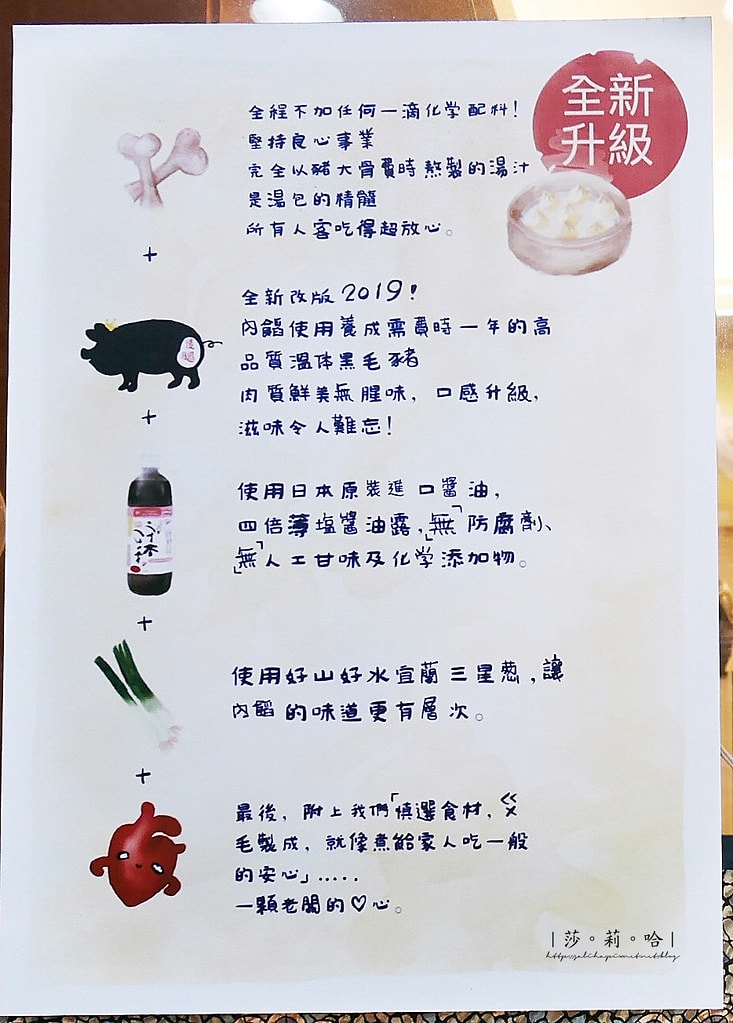 全新
升級
全程不加任何一滴化学配料!
堅持良心事業
完全以豬大骨費時熬製的湯汁
是湯包的精髓
所有人客吃得超放心。
+
全新改版2019!
內餡使用養成需費時一年的高
品質溫体黑毛豬
肉質鮮美無腥味,口感升級,
滋味令人難忘!
後腿
+
使用日本原裝進口醬油,
四倍薄塩醬油露,「無」防腐劑、
「無」人工甘味及化学添加物。
+
使用好山好水宜蘭三星葱,讓
內餡的味道更有層次。
+
最後,附上我們「慎選食材,ㄍㄨ
毛製成,就像煮給家人吃一般
的安心」.....
一顆老闆的♡心。
|莎。莉。哈|